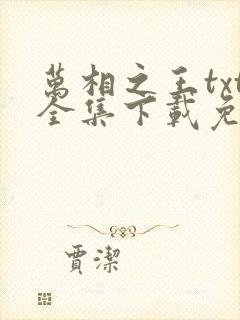 萬相之王txt
全集下載免
賈潔